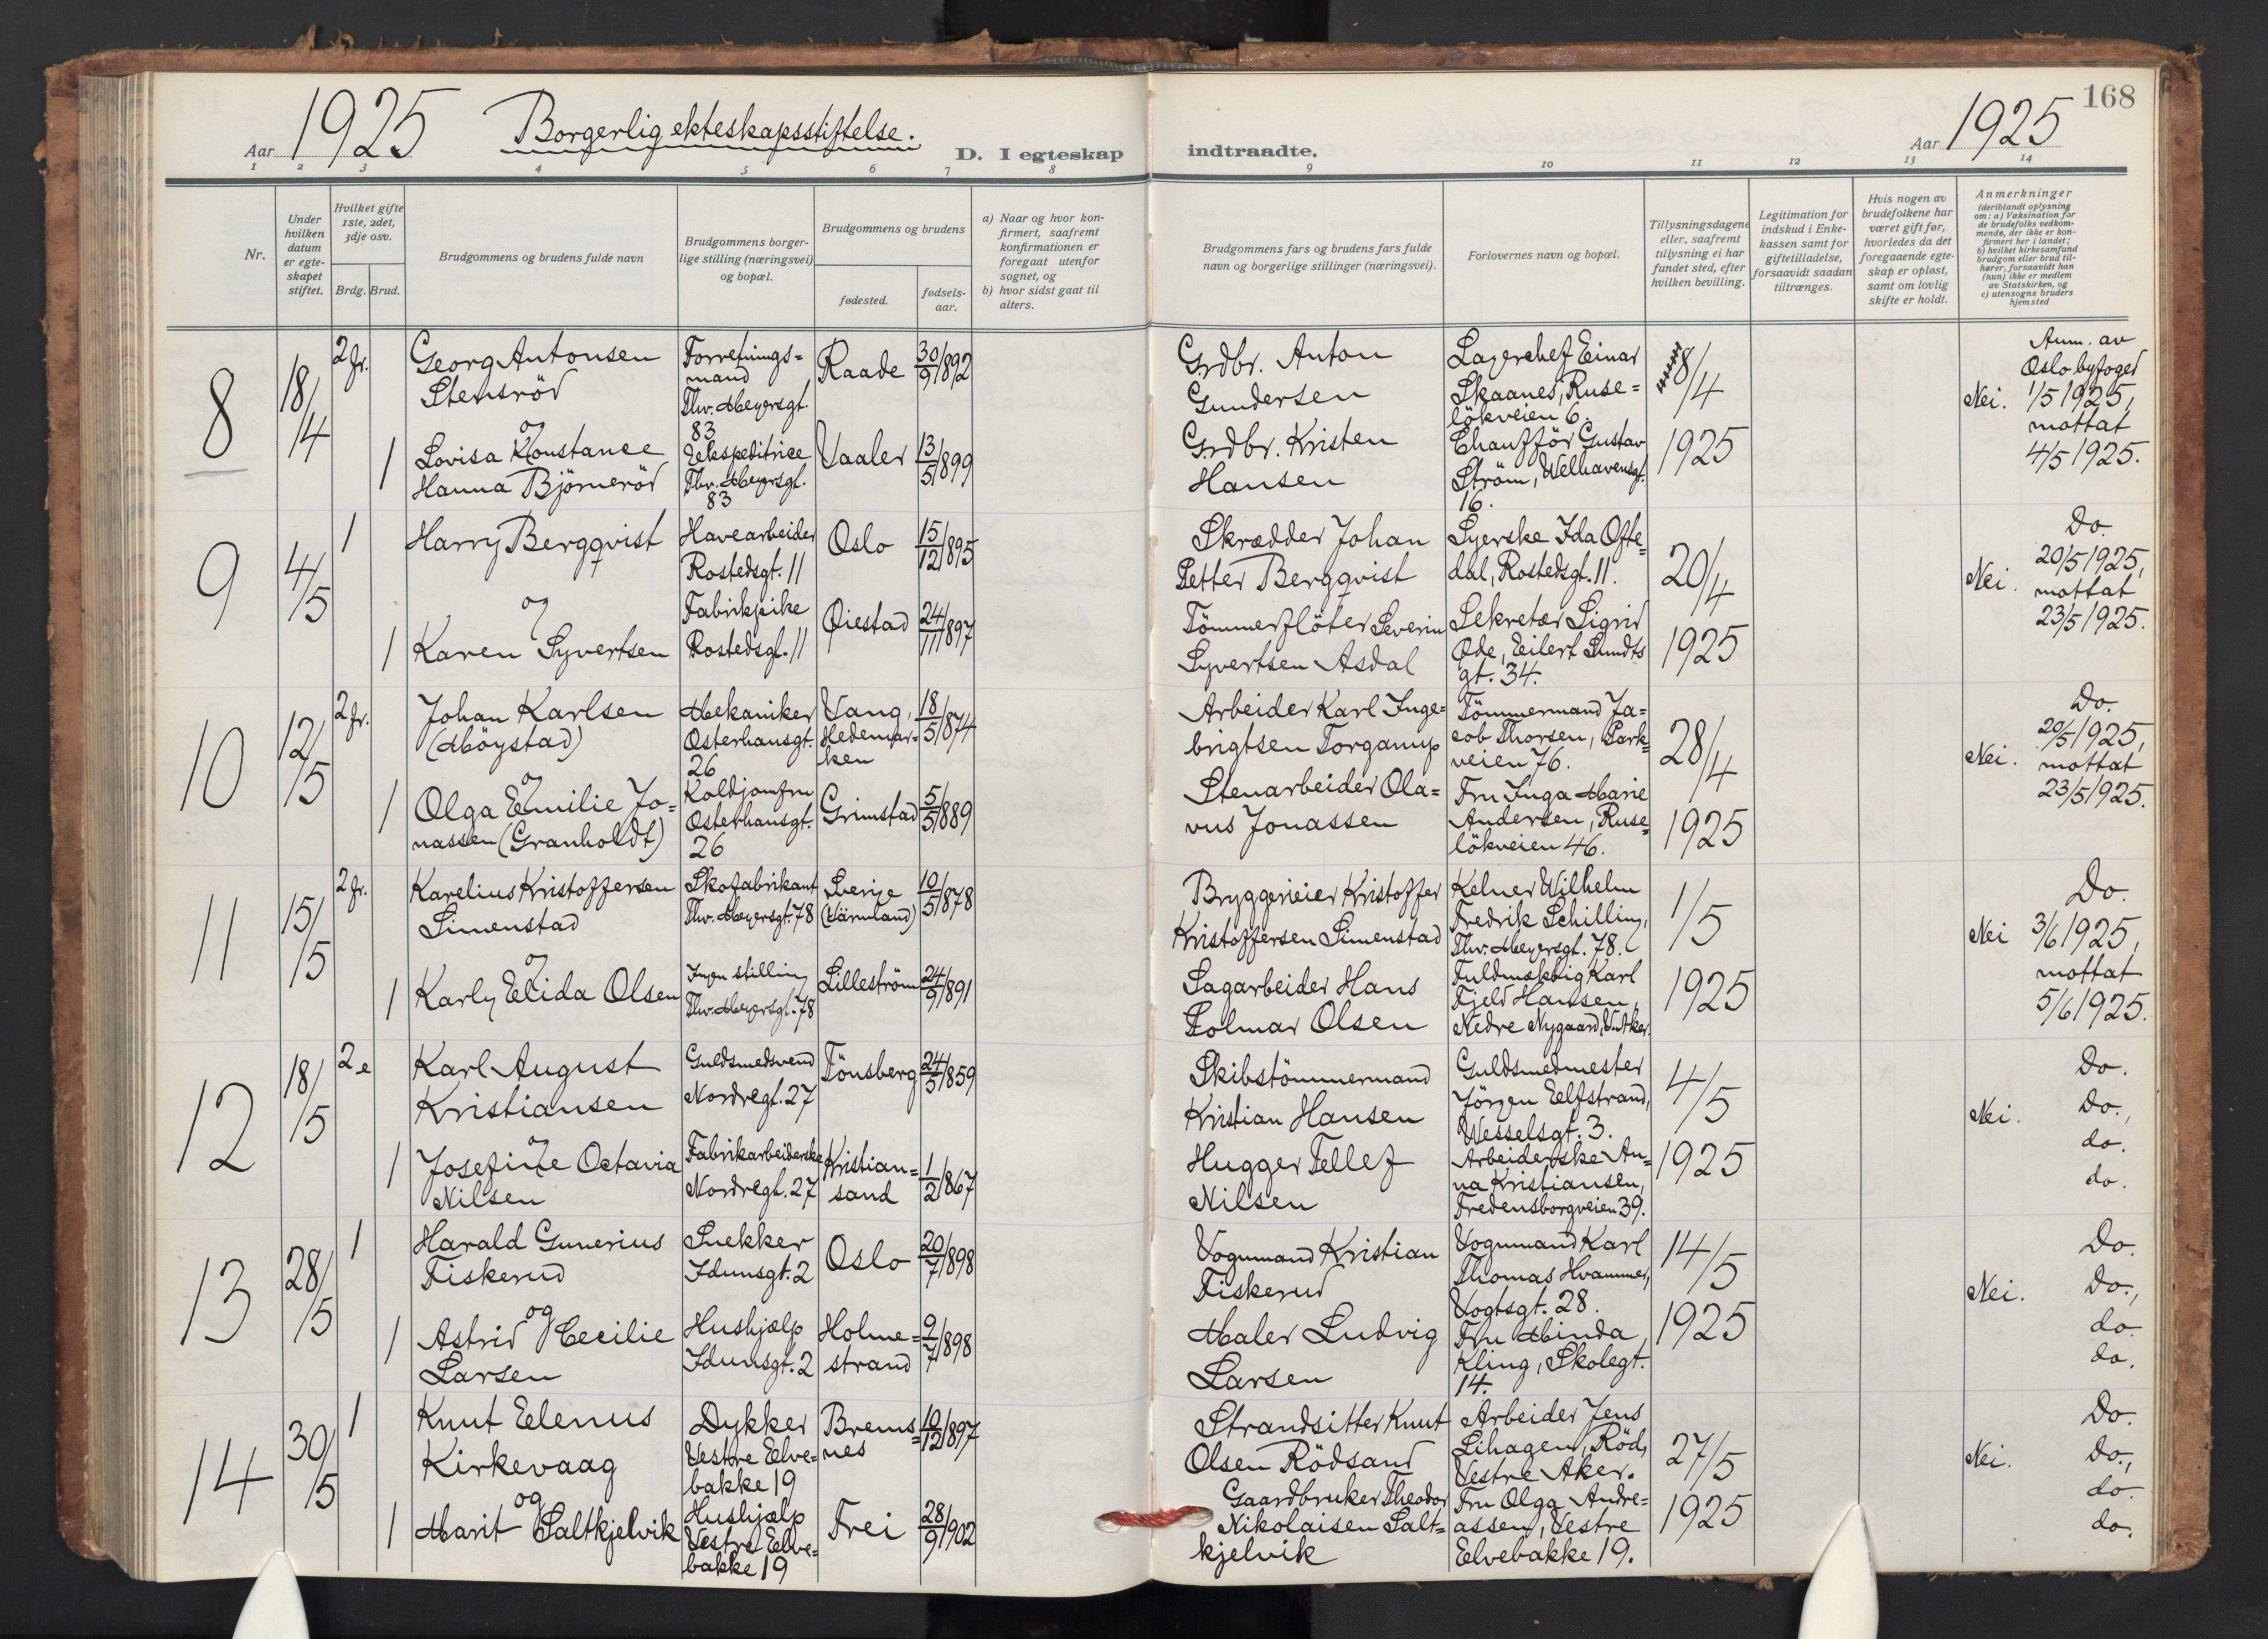 168
Aar 1925
Borgerlig ekteskapsstiftelse.
D. I egteskap
indtraadte.
Aar 1925
1 2 3 4 5 6 7 8 9 10 11 12 13 14
Nr.
Under
hvilken
datum
er egte-
skapet
stiftet.
Hvilket gifte
1ste, 2det,
3dje osv.
Brdg. Brud.
Brudgommens og brudens fulde navn
Brudgommens borger-
lige stilling (næringsvei)
og bopæl.
Brudgommens og brudens
fødested.
fødsels-
aar.
a) Naar og hvor kon-
firmert, saafremt
konfirmationen er
foregaat utenfor
sognet, og
b) hvor sidst gaat til
alters.
Brudgommens fars og brudens fars fulde
navn og borgerlige stillinger (næringsvei).
Forlovernes navn og bopæl.
Tillysningsdagene
eller, saafremt
tillysning ei har
fundet sted, efter
hvilken bevilling.
Legitimation for
indskud i Enke-
kassen samt for
giftetilladelse,
forsaavidt saadan
tiltrænges.
Hvis nogen av
brudefolkene har
været gift før,
hvorledes da det
foregaaende egte-
skap er opløst,
samt om lovlig
skifte er holdt.
Anmerkninger
(deriblandt oplysning
om: a) Vaksination for
de brudefolks vedkom-
mende, der ikke er kon-
firmert her i landet;
b) hvilket kirkesamfund
brudgom eller brud til-
hører, forsaavidt han
(hun) ikke er medlem
av Statskirken, og
c) utensogns bruders
hjemsted
8
18/4
2 fr.
Georg Antonsen
Stensröd
Forretnings-
mand
Thv. Meyersgt.
83
Raade
30/9 1892
og
1
Lovisa Konstance
Hanna Björneröd
Ekspeditrice
Thv. Meyersgt.
83
Vaaler
13/5 1899
Grdbr. Anton
Gundersen
Grdbr. Kristen
Hansen
Lagerchef Einar
Skaanes, Ruse-
lökveien 6.
Chaufför Gustav
Ström, Welhavensgt.
16.
18/4
1925
Nei.
Anm. av
Oslo byfoged
1/5 1925,
mottat
4/5 1925.
9
4/5
1
Harry Bergqvist
Havearbeider
Rostedsgt. 11
Oslo
15/12 1895
og
1
Karen Syvertsen
Fabrikpike
Rostedsgt. 11
Øiestad
24/11 1897
Skrædder Johan
Petter Bergqvist
Tömmerflöter Severin
Syvertsen Asdal
Syerske Ida Ofte-
dal, Rostedsgt. 11.
Sekretær Sigrid
Ode, Eilert Sundts
gt. 34.
20/4
1925
Nei.
Do.
20/5 1925,
mottat
23/5 1925.
10
12/5
2 fr.
Johan Karlsen
(Möystad)
Mekaniker
Osterhausgt.
26
Vang,
Hedemar-
ken
18/5 1874
og
1
Olga Emilie Jo-
nassen (Granholdt)
Koldjomfru
Osterhausgt.
26
Grimstad
5/5 1889
Arbeider Karl Inge-
brigtsen Torgamp
Stenarbeider Ola-
vus Jonassen
Tömmermand Ja-
cob Thorsen, Park-
veien 76.
Fru Inga Marie
Andersen, Ruse-
lökveien 46.
28/4
1925
Nei.
Do.
20/5 1925,
mottat
23/5 1925.
11
15/5
2 fr.
Karelius Kristoffersen
Simenstad
Skofabrikant
Thv. Meyersgt. 78
Sverige
(Värmland)
10/5 1878
og
1
Karly Elida Olsen
Ingen stilling
Thv. Meyersgt. 78
Lilleström
24/9 1891
Bryggerieier Kristoffer
Kristoffersen Simenstad
Sagarbeider Hans
Tolmar Olsen
Kelner Wilhelm
Fredrik Schilling,
Thv. Meyersgt. 78.
Fuldmæktig Karl
Fjeld Hansen,
Nedre Nygaard,
1/5
1925
Nei
Do.
3/6 1925,
mottat
5/6 1925.
12
18/5
2 e
Karl August
Kristiansen
Guldsmedsvend
Nordregt. 27
Tönsberg
24/5 1859
og
1
Josefine Octavia
Nilsen
Fabrikarbeiderske
Nordregt. 27
Kristian-
sand
1/2 1867
Skibstömmermand
Kristian Hansen
Hugger Tellef
Nilsen
Guldsmedmester
Jörgen Elfstrand,
Wesselsgt. 3.
Arbeiderske An-
na Kristiansen,
Fredensborgveien 39.
4/5
1925
Nei.
Do.
Do.,
do.
do.
13
28/5
1
Harald Gunerius
Fiskerud
Snekker
Idunsgt. 2
Oslo
20/7 1898
og
1
Astrid Cecilie
Larsen
Hushjælp
Idunsgt. 2
Holme-
strand
9/7 1898
Vognmand Kristian
Fiskerud
Maler Ludvig
Larsen
Vognmand Karl
Thomas Hvammer,
Vogtsgt. 28.
Fru Minda
Kling, Skolegt.
14.
14/5
1925
Nei.
Do.
Do.,
do.
do.
14
30/5
1
Knut Elenus
Kirkevaag
Dykker
Vestre Elve-
bakke 19
Brems-
nes
10/12 1897
og
1
Marit Saltkjelvik
Hushjælp
Vestre Elve-
bakke 19
Frei
28/9 1902
Strandsitter Knut
Olsen Rödsand
Gaardbruker Theodor
Nikolaisen Salt-
kjelvik
Arbeider Jens
Lihagen, Röd,
Vestre Aker.
Fru Olga Andre-
assen, Vestre
Elvebakke 19.
27/5
1925
Nei.
Do.
Do.,
do.
do.